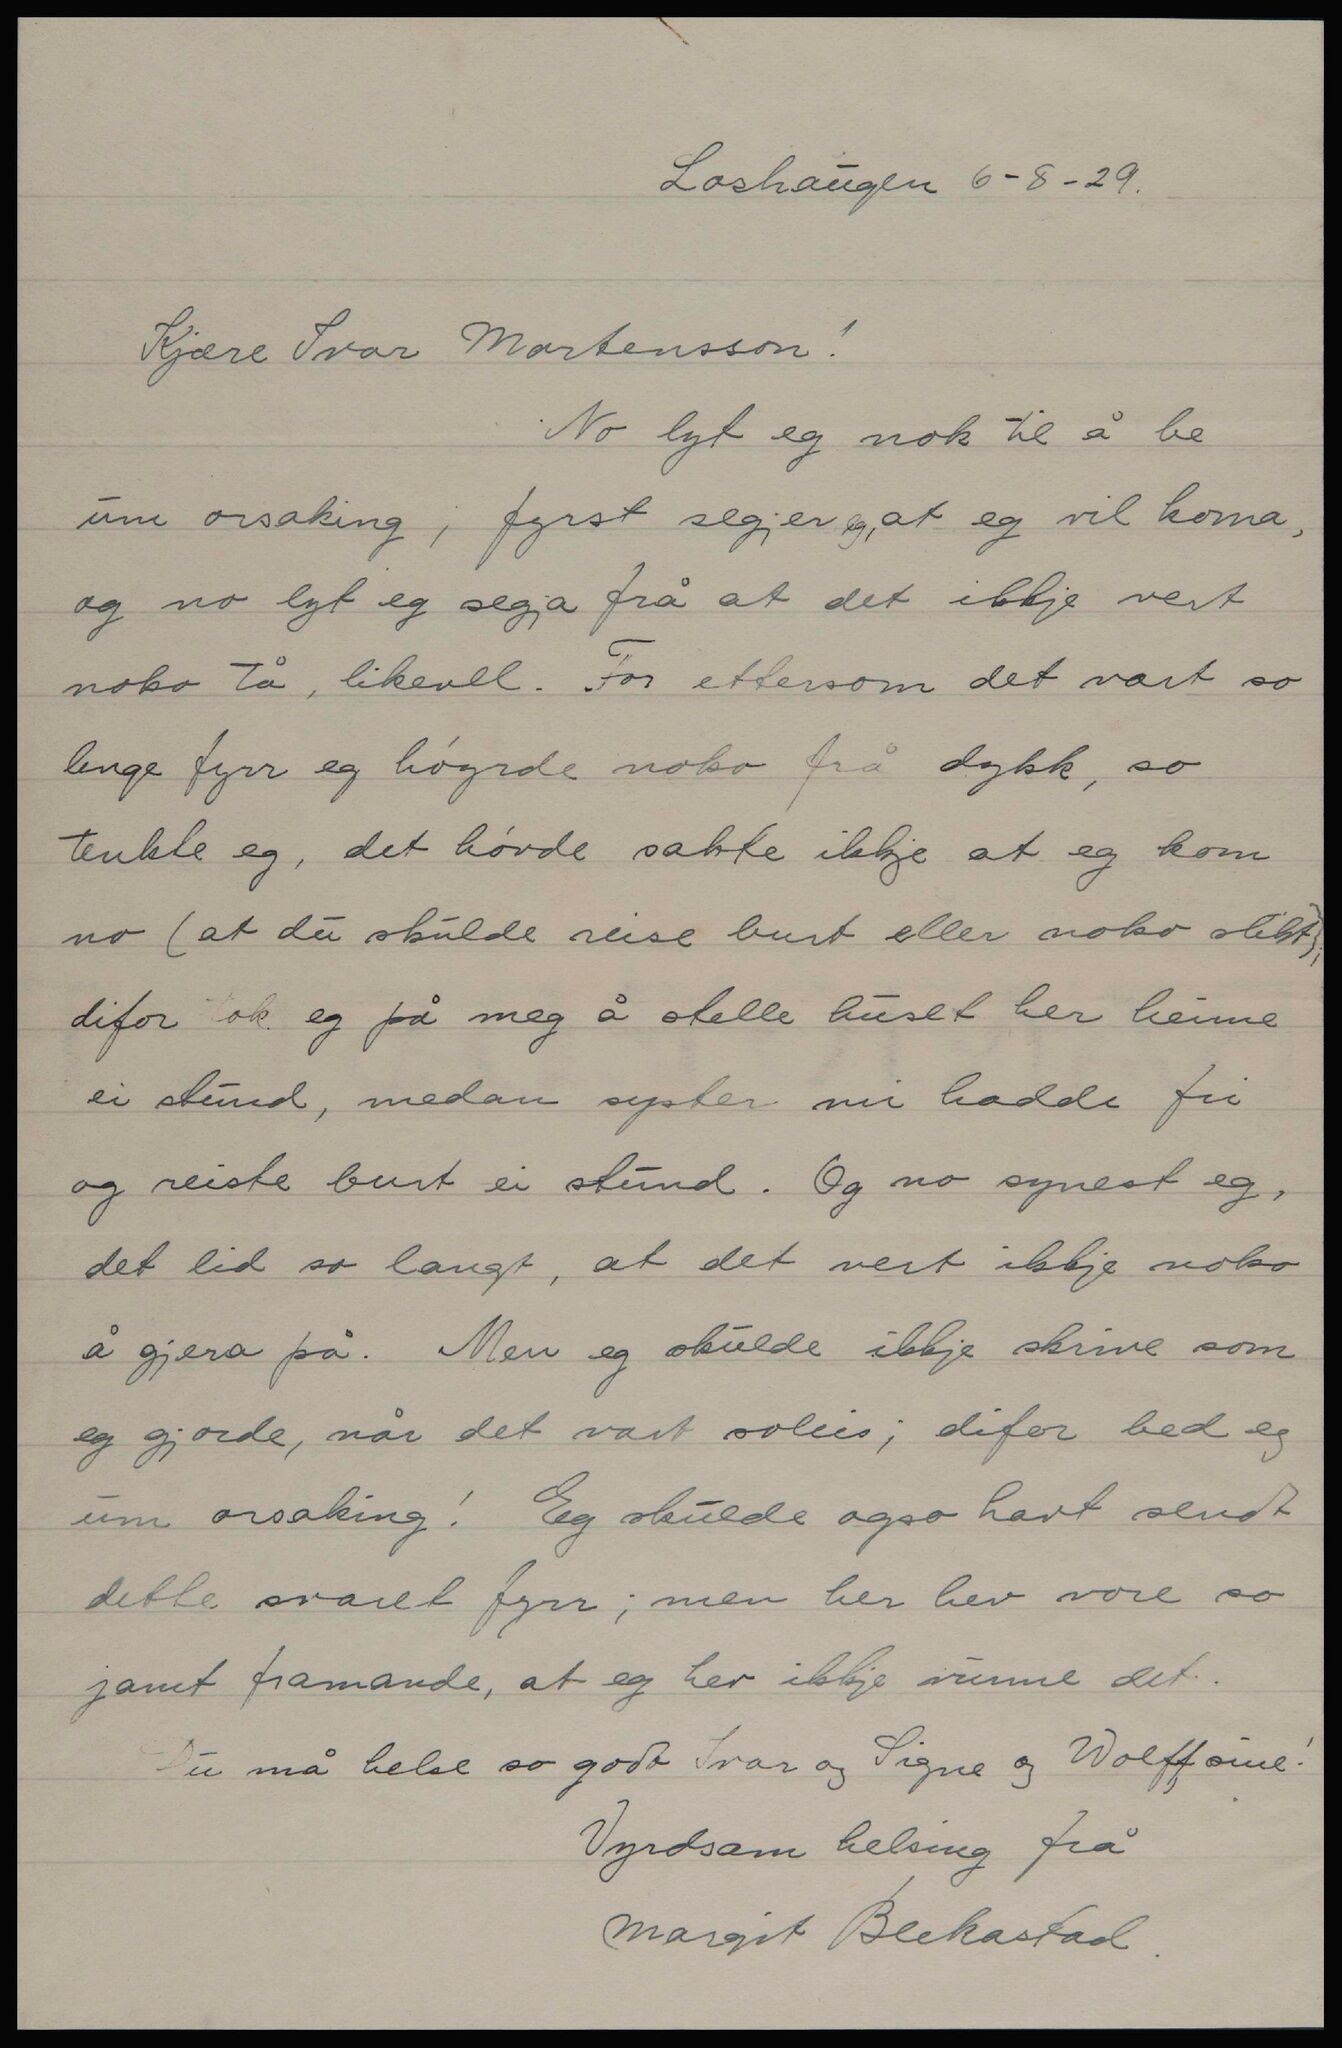 Loshaugen 6-8-29.
Kjære Ivar Mortensson!
No lyt eg nok til å be
um orsaking; fyrst segjer eg, at eg vil koma,
og no lyt eg segja frå at det ikkje vert
noko tå, likevel. For ettersom det vart so
lenge fyrr eg høyrde noko frå dykk, so
tenkte eg, det høvde sakte ikkje at eg kom
no (at du skulde reise burt eller noko slikt);
difor tok eg på meg å stelle huset her heime
ei stund, medan syster mi hadde fri
og reiste burt ei stund. Og no synest eg,
det lid so langt, at det vert ikkje noko
å gjera på. Men eg skulde ikkje skrive som
eg gjorde, når det vart soleis; difor bed eg
um orsaking! Eg skulde ogso havt sendt
dette svaret fyrr; men her hev vore so
jamt framande, at eg hev ikkje vunne det.
Du må helse so godt Ivar og Signe og Wolff, sine!
Vyrdsam helsing frå
Margit Blekastad.